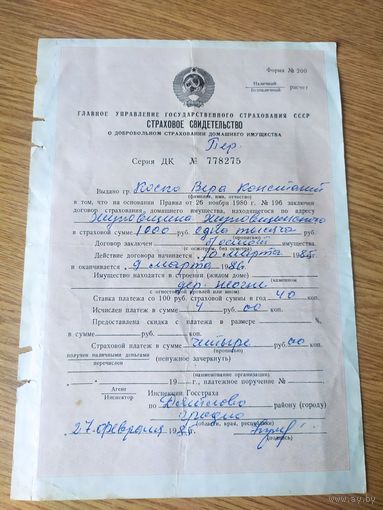 Форма № 200
Наличный
Безналичный расчет
ГЛАВНОЕ УПРАВЛЕНИЕ ГОСУДАРСТВЕННОГО СТРАХОВАНИЯ СССР
СТРАХОВОЕ СВИДЕТЕЛЬСТВО
О ДОБРОВОЛЬНОМ СТРАХОВАНИИ ДОМАШНЕГО ИМУЩЕСТВА
Пер.
Серия ДК № 778275
Выдано гр. Вера
(фамилия, имя, отчество)
в том, что на основании Правил от 26 ноября 1980 г. № 196 заключен
договор страхования домашнего имущества, находящегося по адресу
в страховой сумме 1000 одна тысяча руб.
(прописью)
Договор заключен с осмотром имущества.
(с осмотром, без осмотра)
Действие договора начинается 10 марта 1985 г.
и оканчивается 9 марта 1986 г.
Имущество находится в строении (жилом доме)
(каменном
дер.
с огнестойкой кровлей или ином)
Ставка платежа со 100 руб. страховой суммы в год 40 коп.
Исчислен платеж в сумме 4 руб. 00 коп.
Предоставлена скидка с платежа в размере %
в сумме руб. коп.
Страховой платеж в сумме четыре руб. 00 коп.
(прописью)
получен наличными деньгами
перечислен (ненужное зачеркнуть)
(наименование организации)
19 г., платежное поручение №
Агент
Инспектор Инспекции Госстраха
по району (городу)
Гродно
(области, края, республики)
27 февраля 1985
(подпись)
www.ay.by